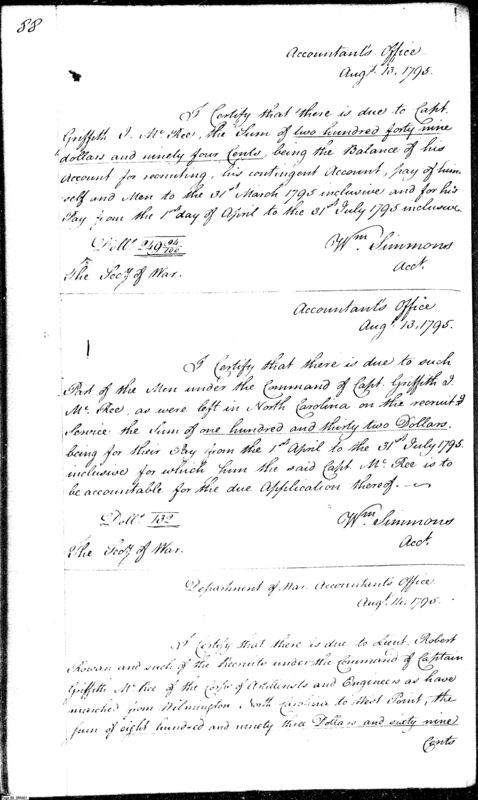 88
Accountant's Office
Augt. 13. 1795.
I Certify that there is due to Capt.
Griffith J. Mc. Ree, the Sum of two hundred forty nine
dollars and ninety four Cents, being the Balance of his
Account for recruiting, his contingent Account, pay of him
self and Men to the 31st March 1795 inclusive and for his
Pay from the 1st day of April to the 31st July 1795 inclusive
Dolls. 249 94/100
Wm Simmons
Acct.
The Secy of War.
Accountant's Office
Augt. 13, 1795.
I Certify that there is due to such
Part of the Men under the Command of Capt. Griffith J.
Mc. Ree, as were left in North Carolina on the recruitg
Service the Sum of one hundred and thirty two Dollars,
being for their Pay from the 1st April to the 31st July 1795
inclusive for which Sum the said Capt. Mc. Ree is to
be accountable for the due Application thereof.
Dolls. 132
Wm Simmons
Acct.
The Secy of War.
Department of War Accountant's Office
Augt. 14. 1795.
I Certify that there is due to Lieut. Robert
Rowan and such of the Recruits under the Command of Captain
Griffith Mc. Ree of the Corps of Artillerists and Engineers as have
marched from Wilmington North Carolina to West Point, the
Sum of eight hundred and ninety three Dollars and sixty nine
Cents